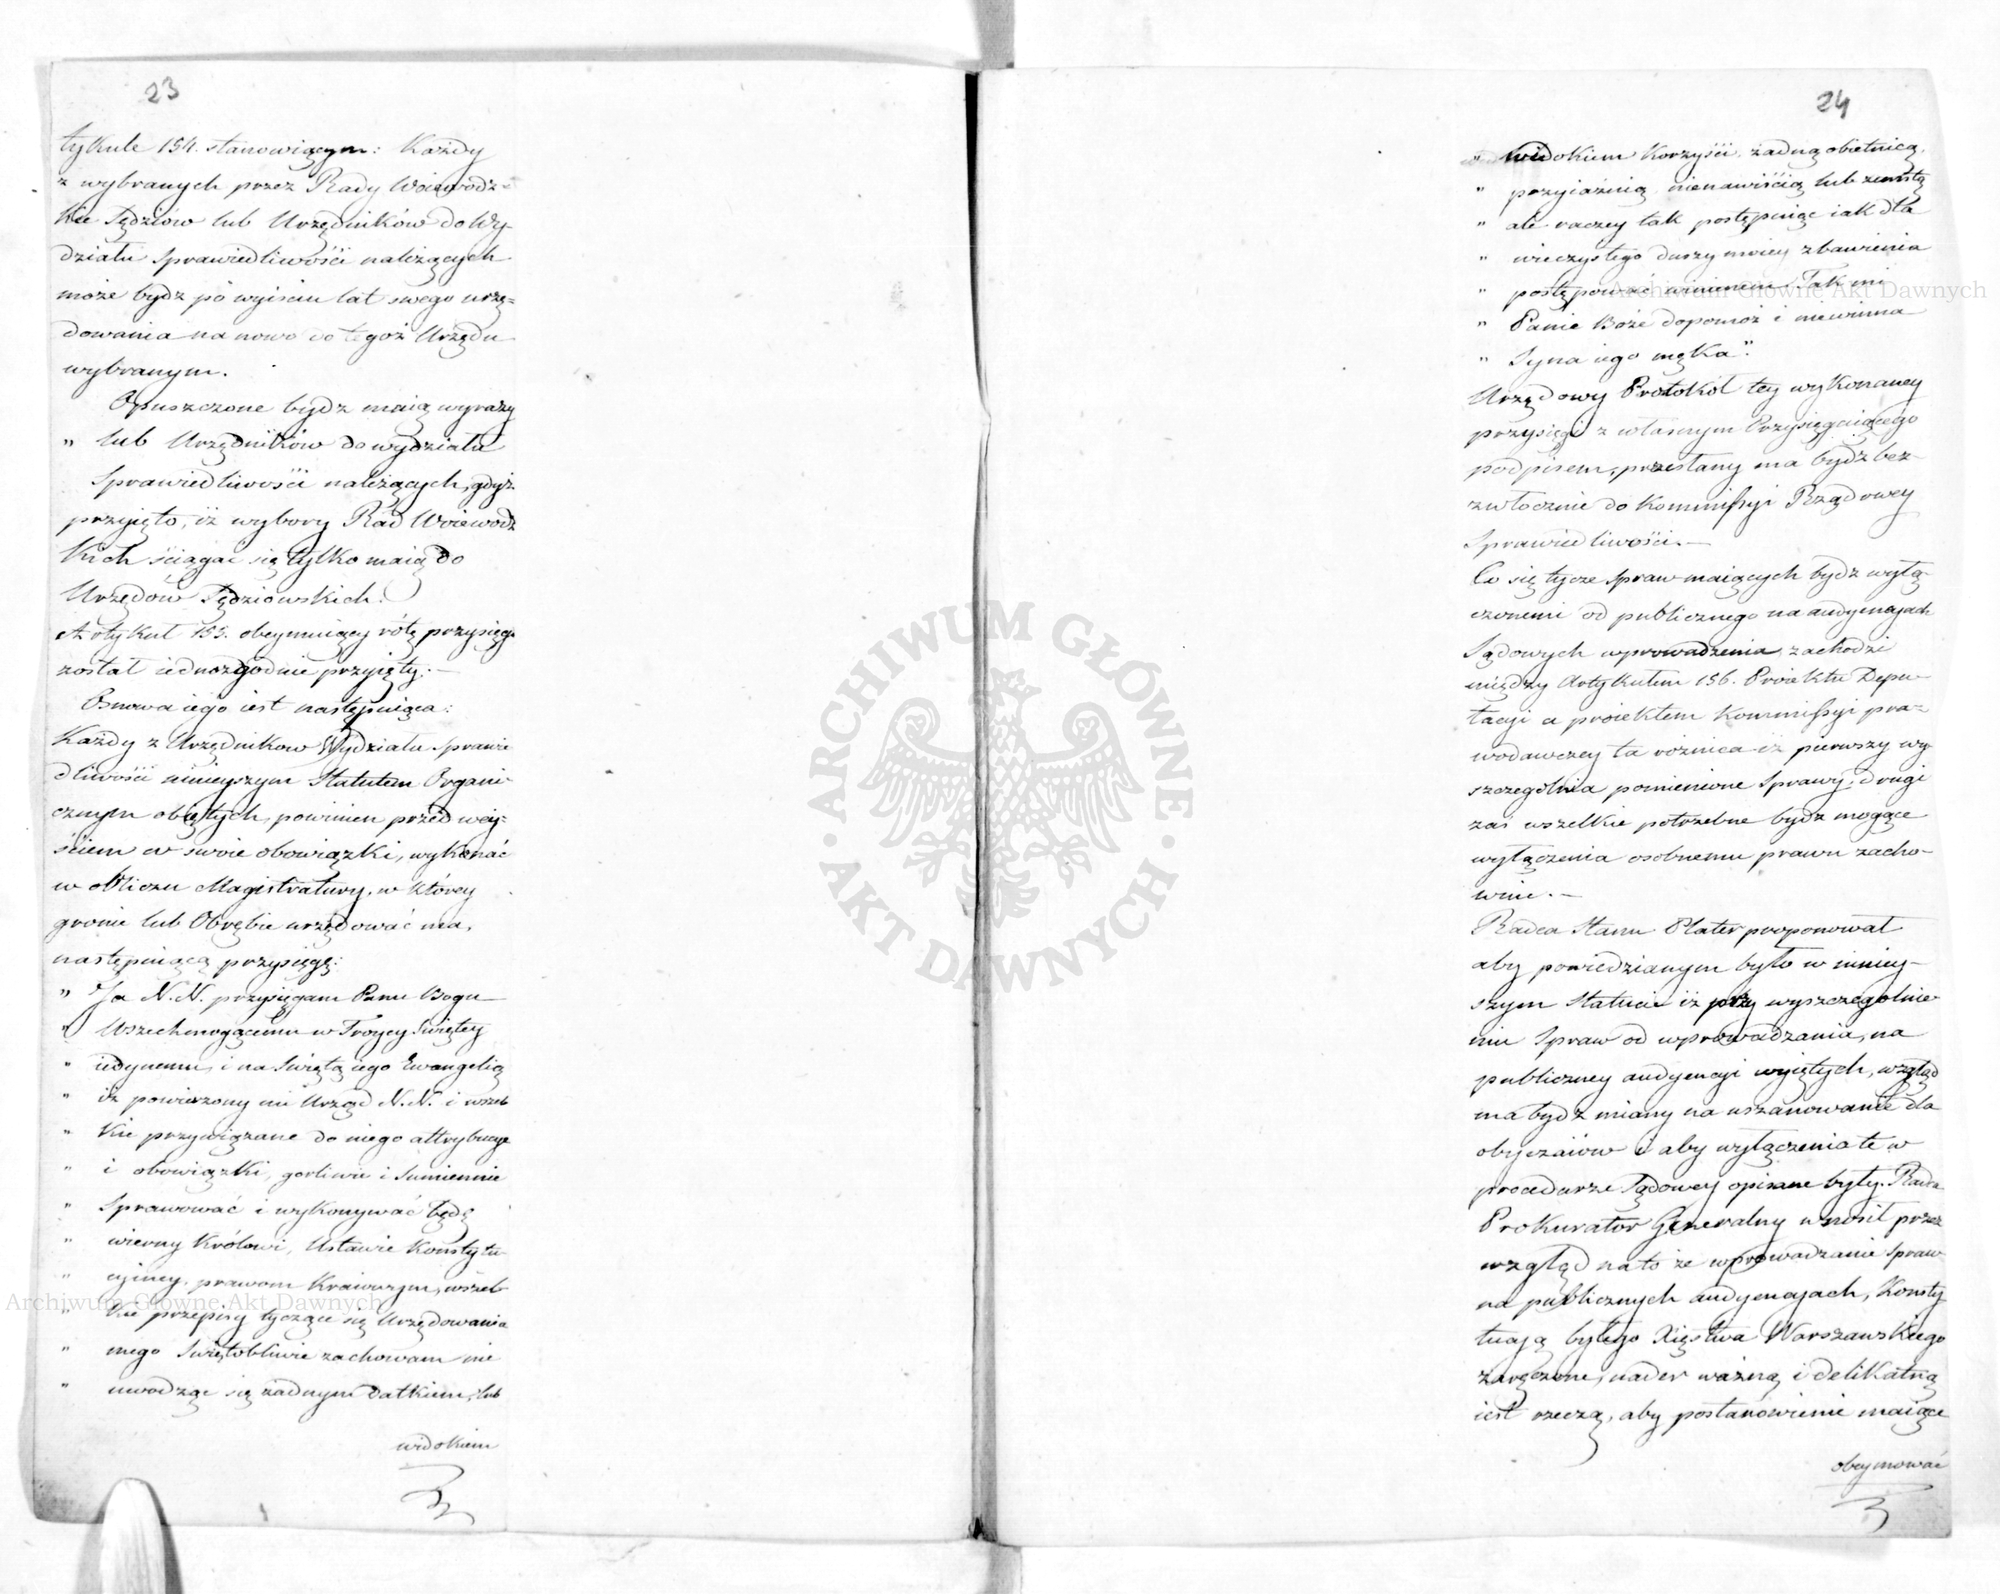 23
tykule 154. stanowiącym: Każdy
z wybranych przez Rady Woiewodz-
kie Sędziów lub Urzędników do Wy-
działu Sprawiedliwości należących
może bydz po wyisciu lat swego urzę-
dowania na nowo do tegoż Urzędu
wybranym.
Opuszczone bydz maią wyrazy
„ lub Urzędników do wydziału
Sprawiedliwości należących, gdyż
przyięto, iż wybory Rad Woiewodz
kich ściągać się tylko maią do
Urzędów Sędziowskich.
Artykuł 155. obeymuiący rotę przysięgi
został iednozgodnie przyięty. —
Osnowa iego iest następuiąca:
Każdy z Urzędnikow Wydziału Sprawie
dliwości ninieyszym Statutem Organi-
cznym obiętych, powinien przed wey-
ściem w swoie obowiązki, wykonać
w obliczu Magistratury, w którey
gronie lub Obrębie urzędować ma,
następuiącą przysięgę:
„ Ja N. N. przysięgam Panu Bogu
„ Wszechmogącemu w Troycy Swiętey
„ iedynemu, i na Swiętą iego Ewangelią
„ iż powierzony mi Urząd N. N. i wszel
„ kie przywiązane do niego attrybucye
„ i obowiązki, gorliwie i Sumiennie
„ Sprawować i wykonywać będę
„ wierny Królowi, Ustawie Konstytu
„ cyiney, prawom Kraiowym, wszel-
„ kie przepisy tyczące się Urzędowania
„ mego Swiętobliwie zachowam nie
„ uwodząc się żadnym datkiem, lub
widokiem
24
„ widokiem korzyści, żadną obietnicą,
„ przyiaźnią, nienawiścią lub zemstą
„ ale raczey tak postępuiąc iak dla
„ wieczystego duszy moiey zbawienia
„ postępować winienem. Tak mi
„ Panie Boże dopomoż i niewinna
„ Syna iego męka”.
Urzędowy Protokół tey wykonaney
przysięgi z własnym Przysięgaiącego
podpisem, przesłany ma bydz bez-
zwłocznie do Kommissyi Rządowey
Sprawiedliwości. —
Co się tycze spraw maiących bydz wyłą-
czonemi od publicznego na audyencyach
Sądowych wprowadzenia, zachodzi
między Artykułem 156. Proiektu Depu
tacyi a proiektem Kommissyi pra-
wodawczey ta róznica iż pierwszy wy-
szczególnia pomienione Sprawy, drugi
zaś wszelkie potrzebne bydz mogące
wyłączenia osobnemu prawu zacho-
wuie. —
Radca Stanu Plater proponował
aby powiedzianym było w ninieÿ-
szym Statucie iż przy wyszczególnie-
niu Spraw od wprowadzania, na
publiczney audyencyi wyiętych, wzgląd
ma bydz miany na uszanowanie dla
obyczaiów i aby wyłączenia te w
procedurze Sądowey opisane były. Radca
Prokurator Generalny wnosił przez
wzgląd na to że wprowadzanie Spraw
na publicznych audyencyach, Konsty
tucyą byłego Xięstwa Warszawskiego
zaręczone, nader ważną i delikatną
iest rzeczą, aby postanowienie maiące
obeymować
Archiwum Główne Akt Dawnych
Archiwum Główne Akt Dawnych
ARCHIWUM GŁÓWNE
AKT DAWNYCH